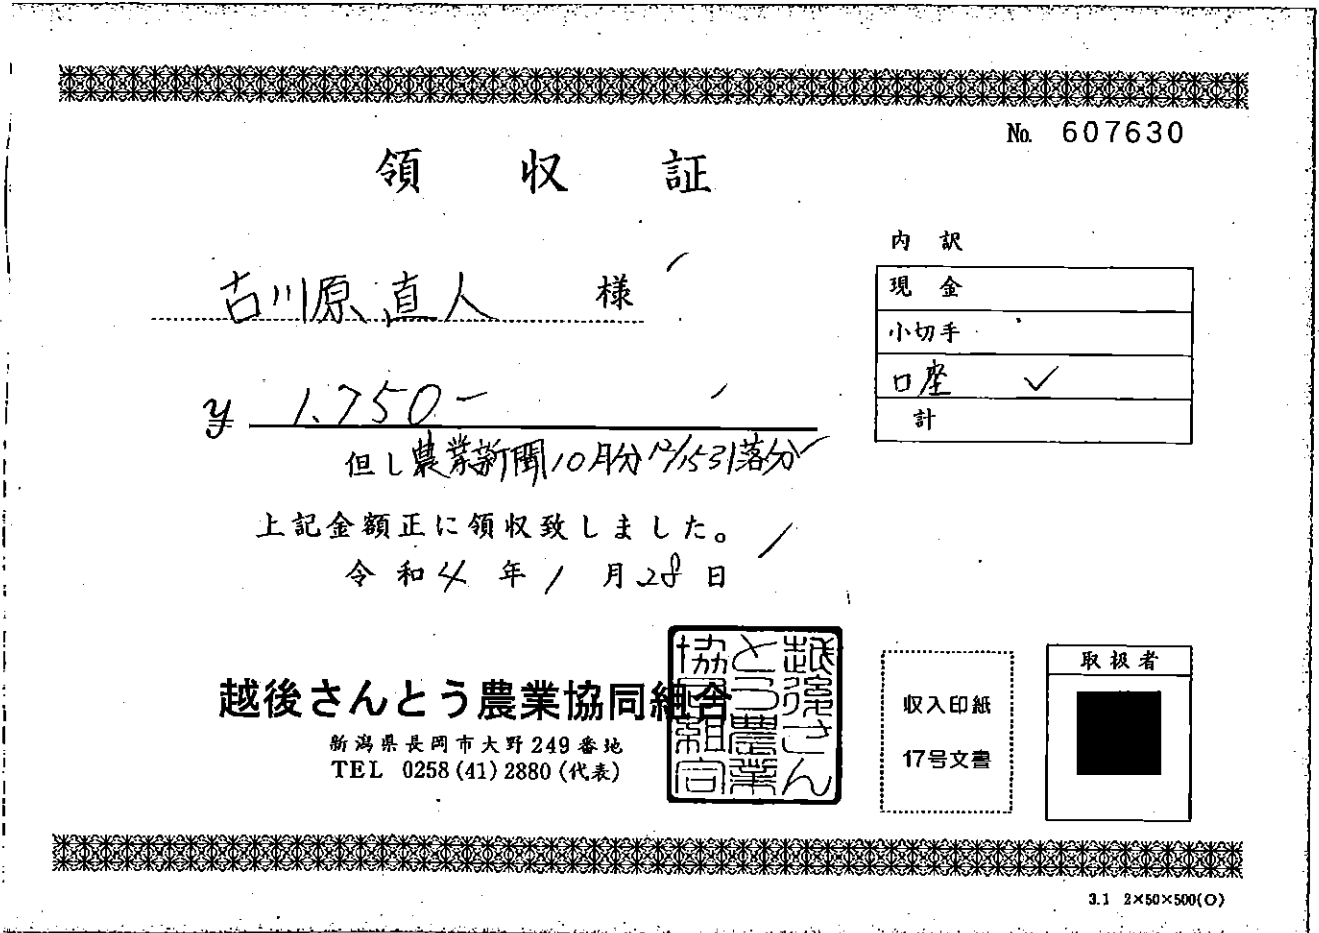 No. 607630
領収証
古川原 直人 様
内訳
現金
小切手
口座 ✓
計
¥ 1,750-
但し農業新聞10月分12/15引落分
上記金額正に領収致しました。
令和4年1月28日
越後さんとう農業協同組合
新潟県長岡市大野249番地
TEL 0258(41)2880(代表)
越後さん
とう農業
協同組合
収入印紙
17号文書
取扱者
3.1 2×50×500(O)